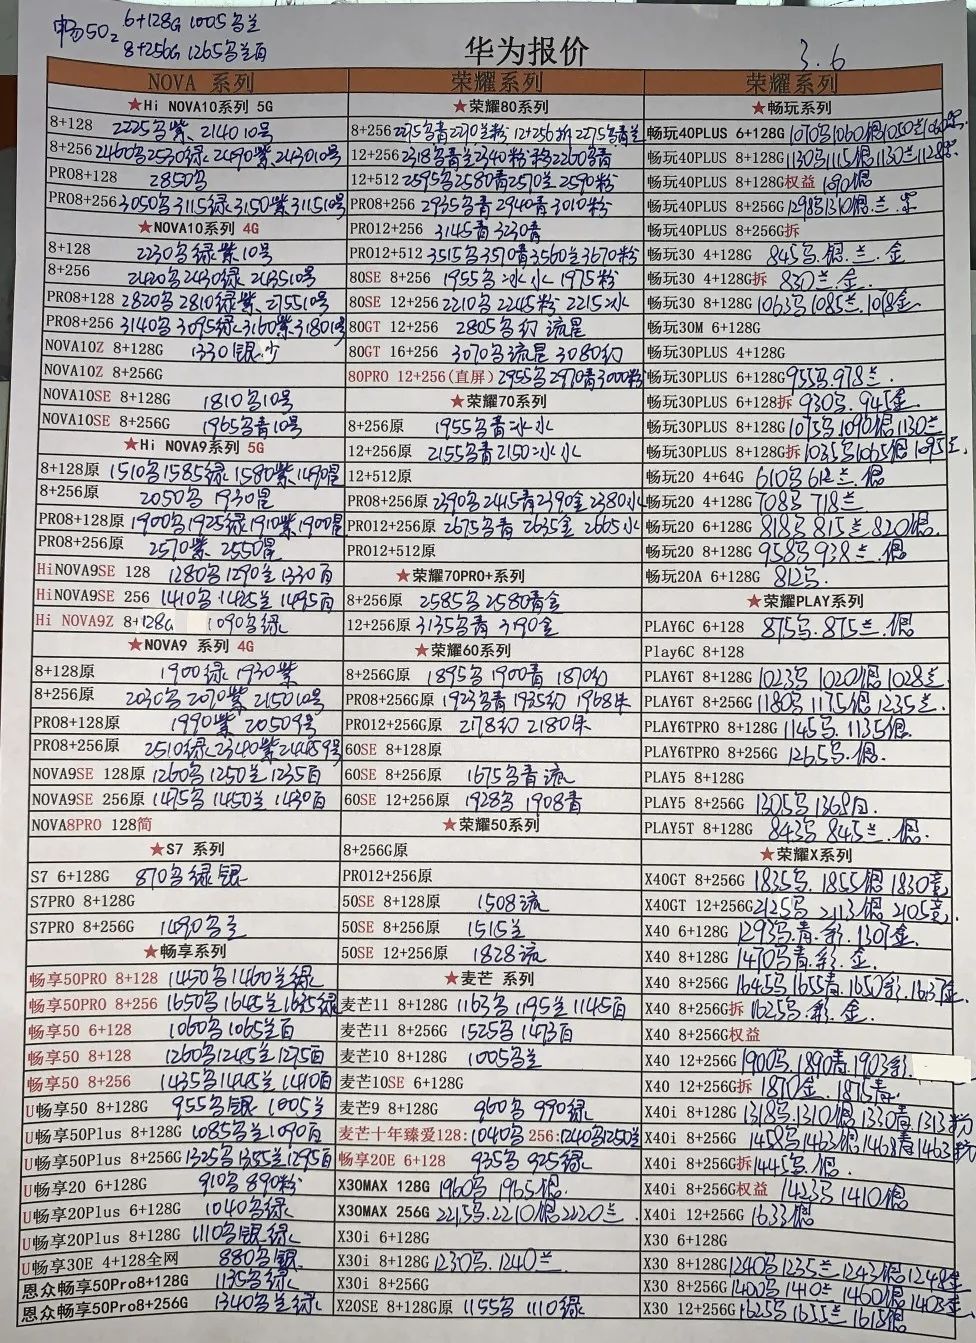 畅50z 6+128G 1005乌兰
8+256G 1265乌兰百
华为报价
3.6
NOVA 系列
★Hi NOVA10系列 5G
8+128 2225乌紫、2140 10号
8+256 2460乌2530绿2490紫、2430 10号
PRO8+128 2850乌
PRO8+256 3050乌3115绿3150紫3115 10号
★NOVA10系列 4G
8+128 2230乌绿紫10号
8+256 2420乌2430绿2435 10号
PRO8+128 2820乌2810绿紫、2755 10号
PRO8+256 3140乌3095绿3160紫3180 10号
NOVA10Z 8+128G 1330银少
NOVA10Z 8+256G
NOVA10SE 8+128G 1810乌10号
NOVA10SE 8+256G 1965乌青10号
★Hi NOVA9系列 5G
8+128原 1510乌1585绿1580紫、1490星
8+256原 2050乌1930星
PRO8+128原 1900乌1925绿1910紫1900星
PRO8+256原 2570紫、2550星
HiNOVA9SE 128 1280乌1290兰1330百
HiNOVA9SE 256 1410乌1485兰1495百
Hi NOVA9Z 8+128G 1090乌绿
★NOVA9 系列 4G
8+128原 1900绿1930紫
8+256原 2030乌2070紫2150 10号
PRO8+128原 1990紫2050 9号
PRO8+256原 2510绿2340紫2445 9号
NOVA9SE 128原 1260乌1250兰1235百
NOVA9SE 256原 1475乌1450兰1430百
NOVA8PRO 128简
★S7 系列
S7 6+128G 870乌绿银
S7PRO 8+128G
S7PRO 8+256G 1490乌兰
★畅享系列
畅享50PRO 8+128 1450乌1460兰绿
畅享50PRO 8+256 1650乌1645兰1635绿
畅享50 6+128 1060乌1065兰百
畅享50 8+128 1260乌1245兰1275百
畅享50 8+256 1435乌1445兰1410百
U畅享50 8+128G 955乌银 1005兰
U畅享50Plus 8+128G 1085乌兰1090百
U畅享50Plus 8+256G 1325乌1355兰1295百
U畅享20 6+128G 910乌890粉
U畅享20Plus 6+128G 1040乌绿
U畅享20Plus 8+128G 1110乌银绿
U畅享30E 4+128全网 880乌银
恩众畅享50Pro8+128G 1135乌绿
恩众畅享50Pro8+256G 1340乌兰绿
荣耀系列
★荣耀80系列
8+256 2275乌青2270兰粉 12+256拆2275乌青兰
12+256 2318乌青兰2340粉 拆2260乌青
12+512 2595乌2580青2570兰2590粉
PRO8+256 2935乌青2940青3010粉
PRO12+256 3145青3230青
PRO12+512 3515乌3570青3560兰3670粉
80SE 8+256 1955乌冰水1975粉
80SE 12+256 2210乌2245粉2215冰
80GT 12+256 2805乌幻流星
80GT 16+256 3070乌流星3080幻
80PRO 12+256(直屏) 2955乌2970青3000粉
★荣耀70系列
8+256原 1955乌青冰水
12+256原 2155乌青2150冰水
12+512原
PRO8+256原 2390乌2415青2390金2380水
PRO12+256原 2675乌青2635金2665水
PRO12+512原
★荣耀70PRO+系列
8+256原 2585乌2580青金
12+256原 3135乌青3190金
★荣耀60系列
8+256G原 1895乌1900青1870幻
PRO8+256G原 1923乌青1935幻1968朱
PRO12+256G原 2178幻2180朱
60SE 8+128原
60SE 8+256原 1675乌青流
60SE 12+256原 1928乌1908青
★荣耀50系列
8+256G原
PRO12+256原
50SE 8+128原 1508流
50SE 8+256原 1515兰
50SE 12+256原 1828流
★麦芒 系列
麦芒11 8+128G 1163乌1195兰1145百
麦芒11 8+256G 1525乌1473百
麦芒10 8+128G 1005乌兰
麦芒10SE 6+128G
麦芒9 8+128G 960乌990绿
麦芒十年臻爱128:1040乌 256:1240乌1250兰
畅享20E 6+128 935乌925绿
X30MAX 128G 1960乌1965银.
X30MAX 256G 2215乌.2210银2220兰.
X30i 6+128G
X30i 8+128G 1230乌.1240兰.
X30i 8+256G
X20SE 8+128G原 1155乌1110绿
荣耀系列
★畅玩系列
畅玩40PLUS 6+128G 1070乌1060银1050兰
畅玩40PLUS 8+128G 1130乌1115银1130兰1128紫
畅玩40PLUS 8+128G权益 1090银
畅玩40PLUS 8+256G 1298乌1310银.兰.紫
畅玩40PLUS 8+256G拆
畅玩30 4+128G 845乌.银.兰.金
畅玩30 4+128G拆 830兰.金.
畅玩30 8+128G 1063乌1085兰.1078金.
畅玩30M 6+128G
畅玩30PLUS 4+128G
畅玩30PLUS 6+128G 955乌.978兰.
畅玩30PLUS 6+128拆 930乌.945金.
畅玩30PLUS 8+128G 1075乌1090银1130兰
畅玩30PLUS 8+128G拆 1035乌1065银1095兰.
畅玩20 4+64G 610乌612兰.银
畅玩20 4+128G 708乌718兰.
畅玩20 6+128G 818乌815兰820银.
畅玩20 8+128G 958乌938兰.银
畅玩20A 6+128G 812乌.
★荣耀PLAY系列
PLAY6C 6+128 875乌.875兰.银
Play6C 8+128
PLAY6T 8+128G 1023乌1020银1028兰
PLAY6T 8+256G 1180乌1175银1235兰
PLAY6TPRO 8+128G 1145乌.1135银.
PLAY6TPRO 8+256G 1265乌.银.
PLAY5 8+128G
PLAY5 8+256G 1305乌1368白.
PLAY5T 8+128G 843乌845兰.银.
★荣耀X系列
X40GT 8+256G 1835乌.1855银1830竞
X40GT 12+256G 2125乌2113银2105竞.
X40 6+128G 1293乌.青.彩.1307金.
X40 8+128G 1470乌青.彩.金.
X40 8+256G 1645乌1655青.1650彩.1637金.
X40 8+256G拆 1625乌.彩.金.
X40 8+256G权益
X40 12+256G 1900乌.1890青.1903彩.
X40 12+256G拆 1870金.1875青.
X40i 8+128G 1318乌.1310银1330青1313粉
X40i 8+256G 1458乌1463银1468青1463粉
X40i 8+256G拆 1445乌.银.
X40i 8+256G权益 1423乌1410银
X40i 12+256G 1633银
X30 6+128G
X30 8+128G 1240乌1235兰1243银1248金
X30 8+256G 1400乌1410兰1460银1403金.
X30 12+256G 1625乌1655兰1618银.